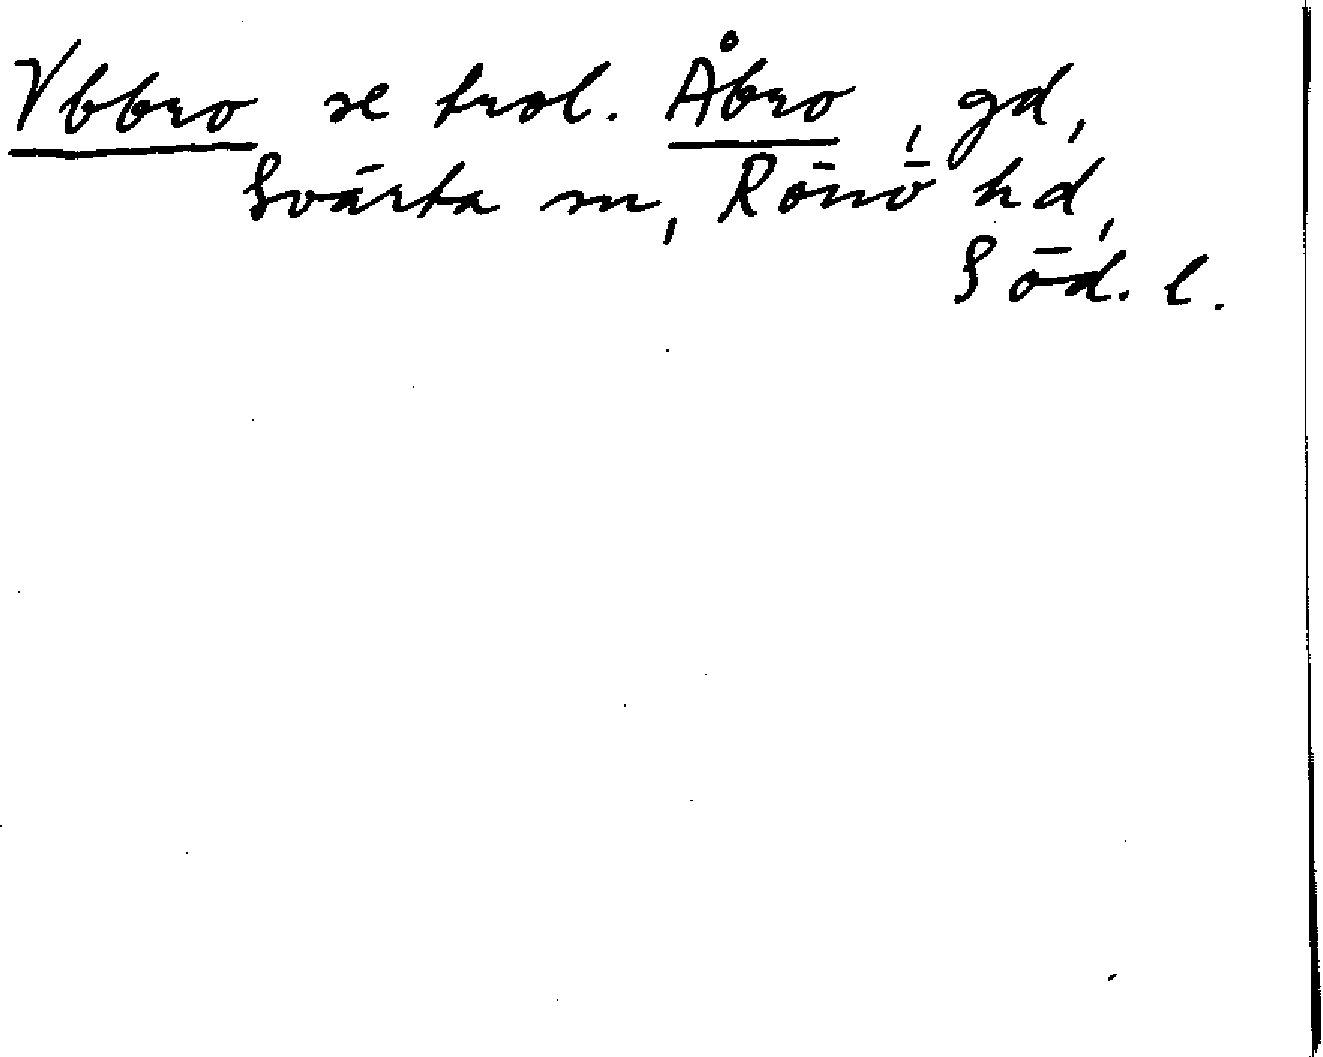 Vbbro se trol. Åbro, gd,
Svärta sn, Rönö hd,
Söd. l.